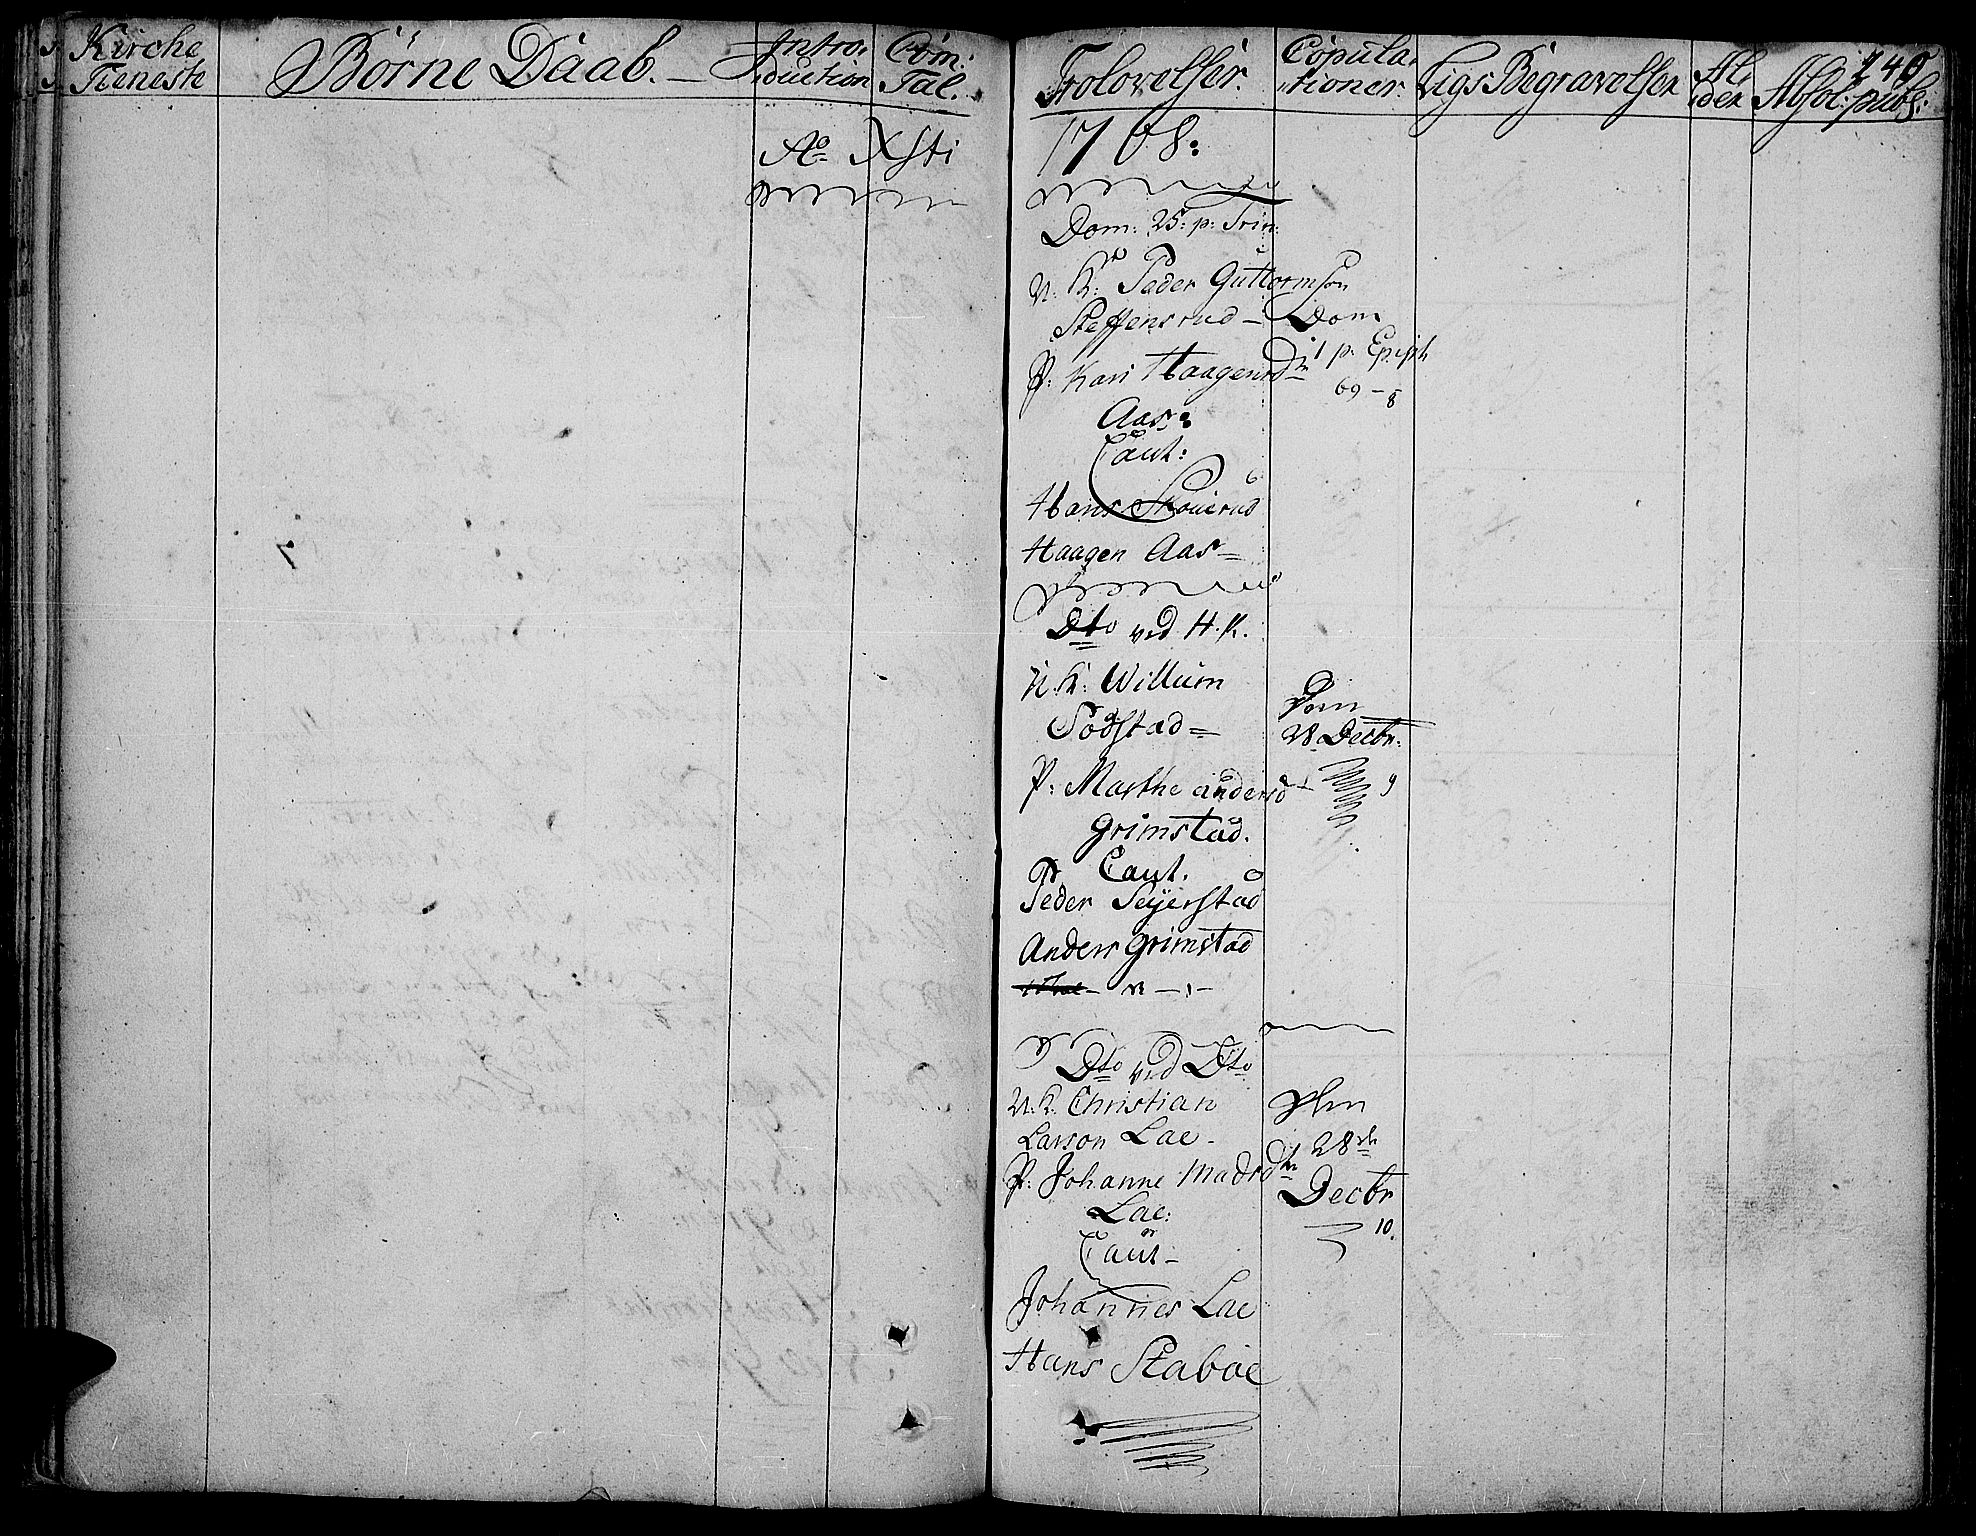 Kirche
Tieneste
Börne Daab. —
Intro,
duction
Com:
Tal.
Trolovelser.
Copula,
tioner
Ligs Begravelser
Al,
der
Absol: publ:
240
Ao Xsti 1768:
Dom: 25: p: Trin:
U. K: Peder Guttormson
Steffensrud — Dom
P: Kari Haagensd
1 p. Epiph
69 — 8
Aas:
Caut:
Hans
Haagen Aas =
Dto ved H. K.
U. K: Willum
Södstad =
Dom
28 Decbr.
P: Marthe andersd
9
Grimstad.
Caut.
Peder Seyerstad
Anders Grimstad
Dto ved Dto
U. K. Christian
Larson Lae -
28de
P: Johanne Madsdtr
Decbr
Lae:
10.
Caut -
Johannes Lae
Hans Staboe